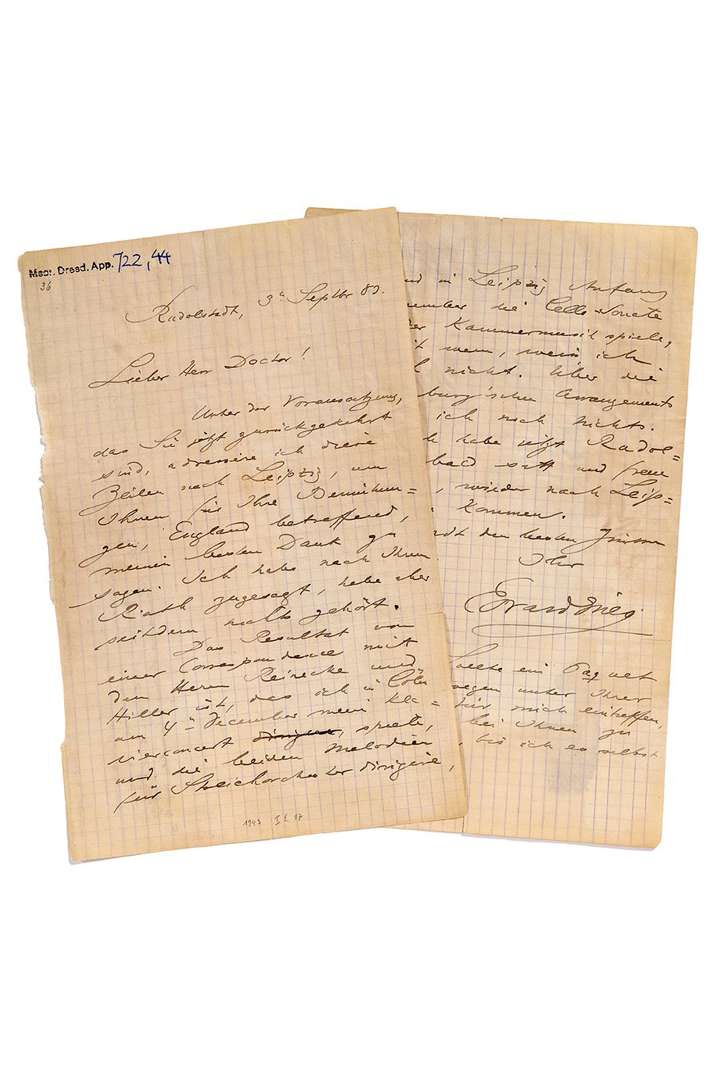 Mscr. Dresd. App. 722,44
36
Rudolstadt, 3n Septbr 83.
Lieber Herr Doctor!
Unter der Voraussetzung,
das Sie jetzt zurückgekehrt
sind, adressire ich diese
Zeilen nach Leipzig, um
Ihnen für Ihre Bemühun=
gen, England betreffend,
meinen besten Dank zu
sagen. Ich habe nach Ihrem
Rath zugesagt, habe aber
seitdem nichts gehört.
Das Resultat von
einer Correspondence mit
den Herrn Reinecke und
Hiller ist, das ich in Cöln
am 4n December mein Kla=
vierconcert spiele,
und die beiden Melodien
für Streichorchester dirigire,
1943 I E 87
und in Leipzig Anfang
die Cello-Sonate
der Kammermusik spiele,
wenn, wenn ich
nicht. Über die
burg'schen Arrangements
ich noch nichts.
habe jetzt Rudol=
bad satt und freue
, wieder nach Leip=
kommen.
den besten Grüssen
Ihr
Edvard Grieg
Sollte ein Paquet
wegen unter Ihrer
für mich eintreffen,
bei Ihnen zu
, bis ich es selbst